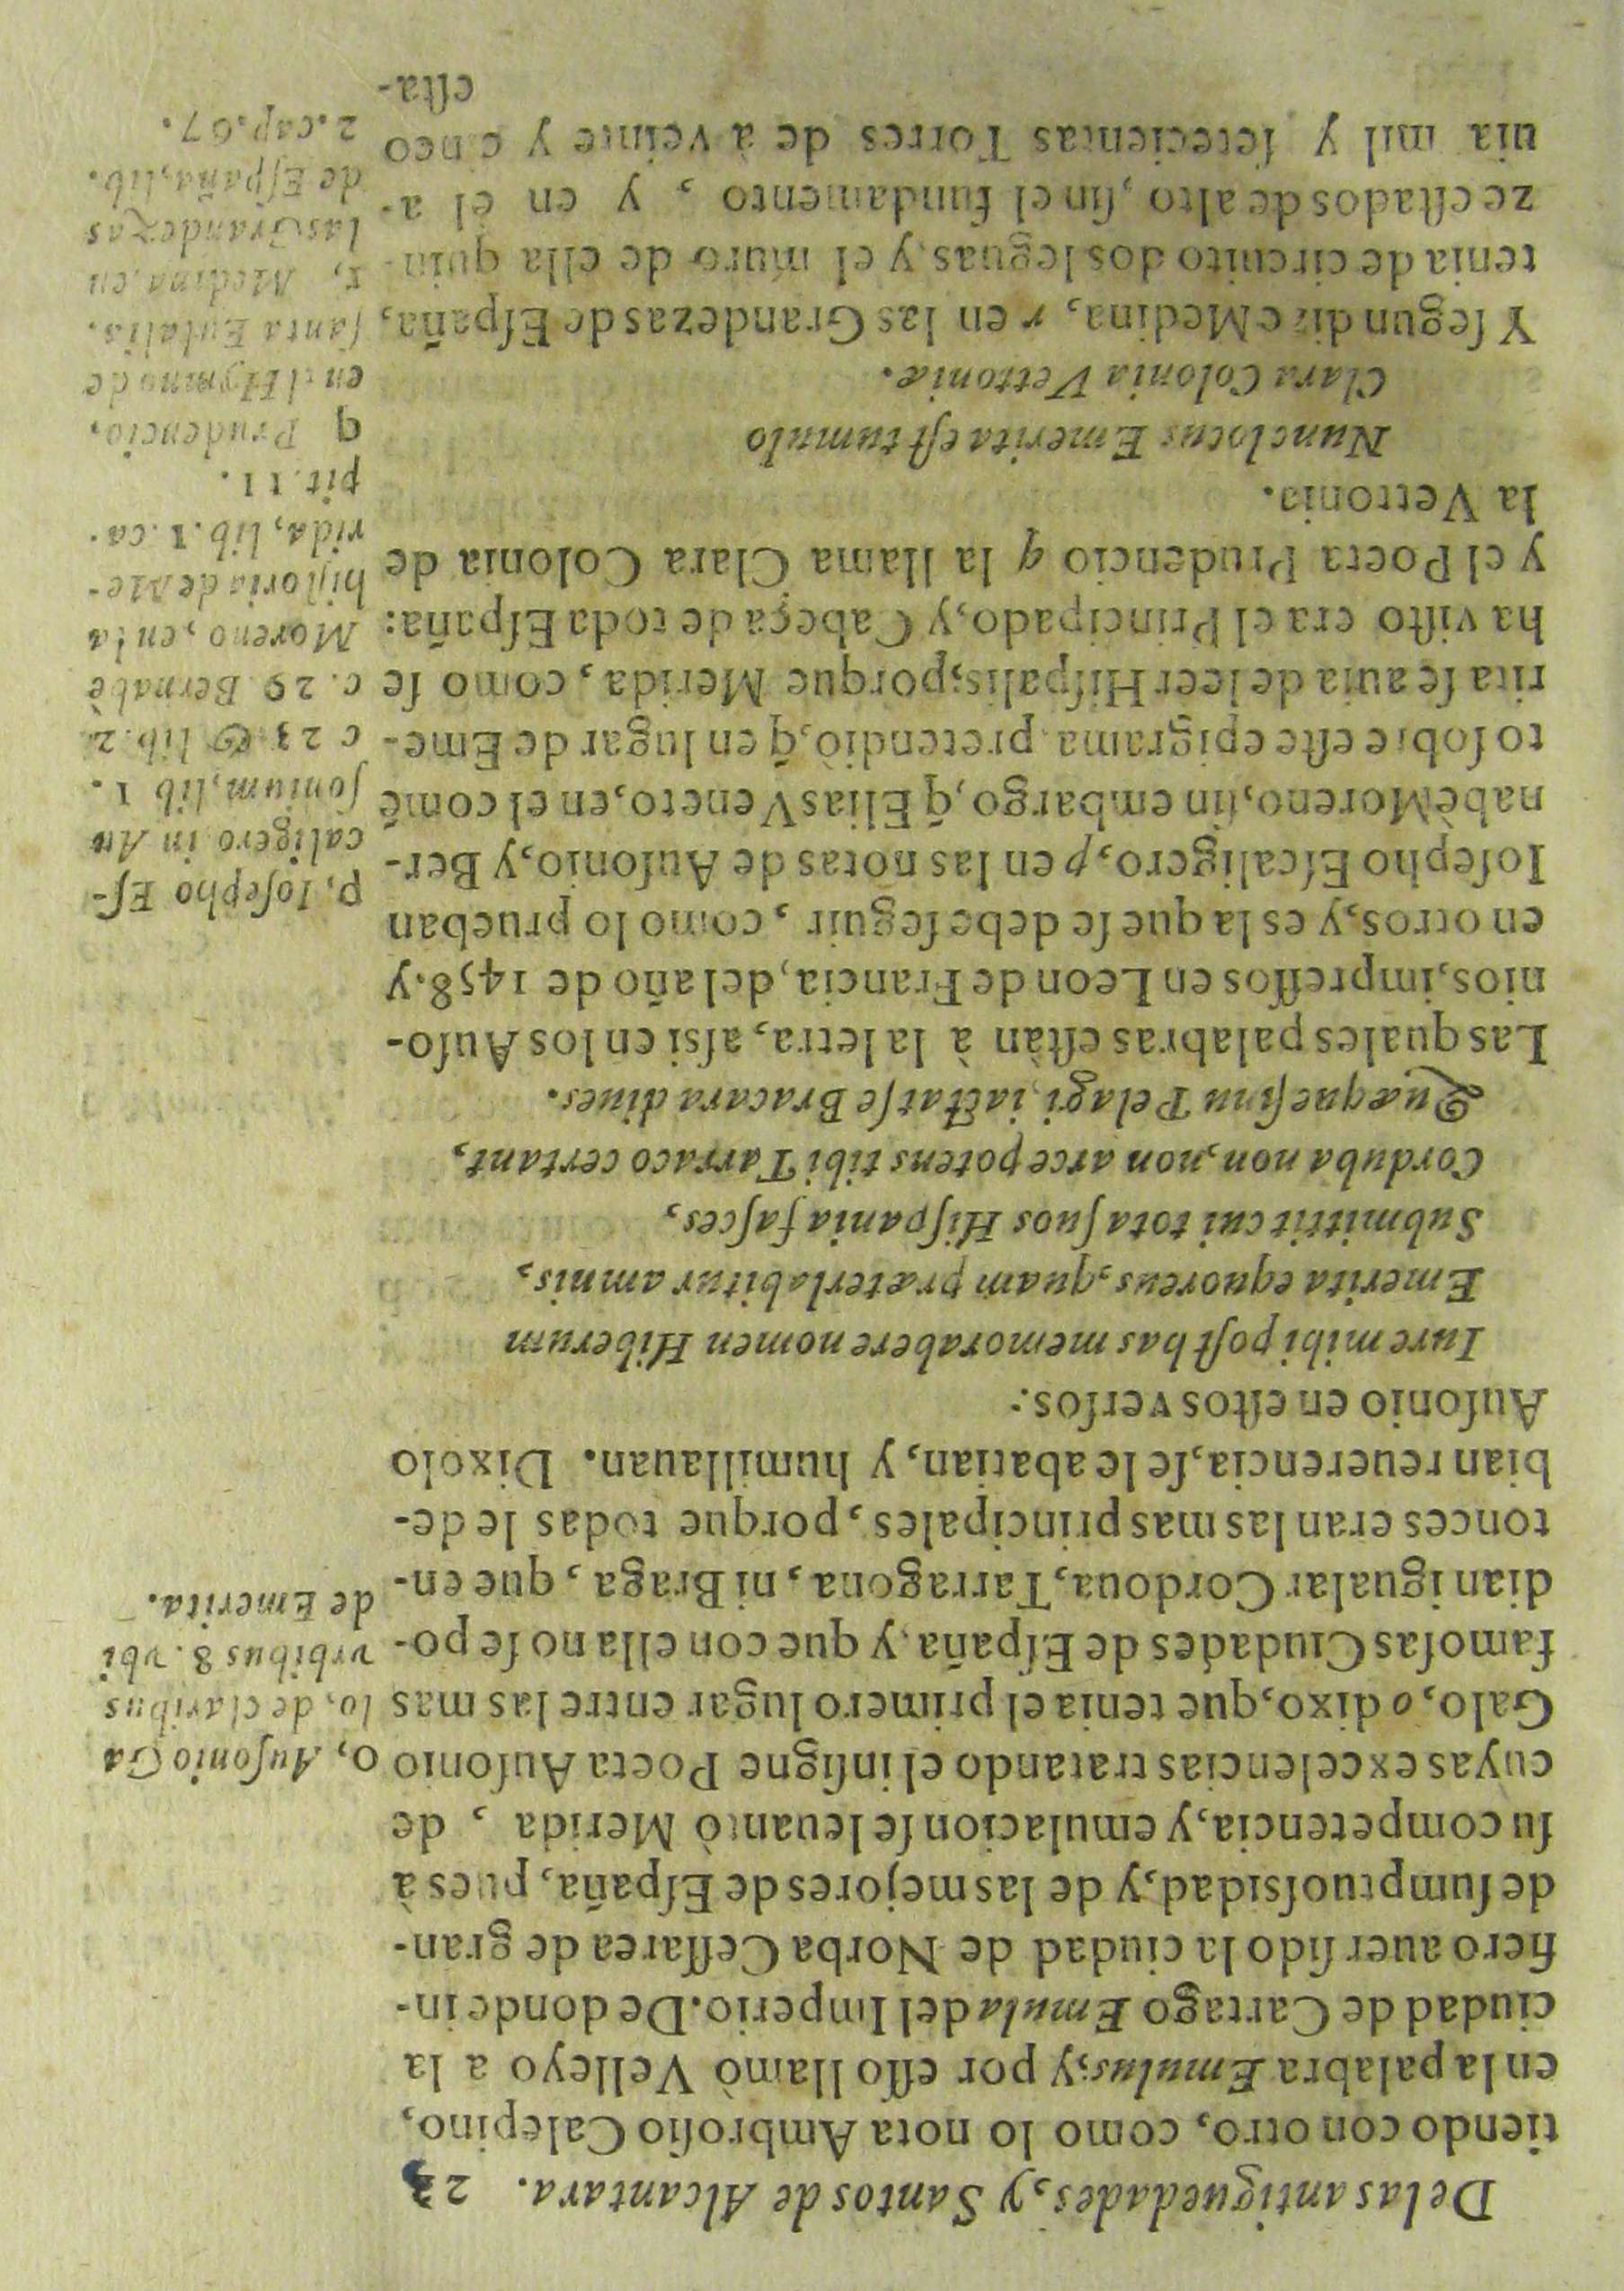 De las antiguedades, y Santos de Alcantara. 23
tiendo con otro, como lo nota Ambrosio Calepino,
en la palabra Emulus; y por esso llamò Velleyo a la
ciudad de Cartago Emula del Imperio. De donde in-
fiero auer sido la ciudad de Norba Cessarea de gran-
de sumptuosidad, y de las mejores de España, pues à
su competencia, y emulacion se leuantò Merida, de
cuyas excelencias tratando el insigne Poeta Ausonio
Galo, o dixo, que tenia el primero lugar entre las mas
famosas Ciudades de España, y que con ella no se po-
dian igualar Cordoua, Tarragona, ni Braga, que en-
tonces eran las mas principales, porque todas le de-
bian reuerencia, se le abatian, y humillauan. Dixolo
Ausonio en estos versos:
Iure mihi post has memorabere nomen Hiberum
Emerita equoreus, quam præterlabitur amnis,
Submittit cui tota suos Hispania fasces,
Corduba non, non arce potens tibi Tarraco certant,
Quæque sinu Pelagi, iactat se Bracara diues.
Las quales palabras estàn à la letra, assi en los Auso-
nios, impressos en Leon de Francia, del año de 1458. y
en otros, y es la que se debe seguir, como lo prueban
Iosepho Escaligero, p en las notas de Ausonio, y Ber-
nabè Moreno, sin embargo, q̃ Elias Veneto, en el comẽ
to sobre este epigrama pretendiò, q̃ en lugar de Eme-
rita se auia de leer Hispalis; porque Merida, como se
ha visto era el Principado, y Cabeça de toda España:
y el Poeta Prudencio q la llama Clara Colonia de
la Vettonia.
Nunc locus Emerita est tumulo
Clara Colonia Vettoniæ.
Y segun dize Medina, r en las Grandezas de España,
tenia de circuito dos leguas, y el muro de ella quin-
ze estados de alto, sin el fundamento, y en èl a-
uia mil y setecientas Torres de à veinte y cinco
esta-
o, Ausonio Ga
lo, de claribus
vrbibus 8. vbi
de Emerita.
p, Iosepho Es-
caligero in Au
sonium, lib 1.
c 23. & lib. 2.
c. 29 Bernabè
Moreno, en la
historia de Me-
rida, lib. 1. ca-
pit. 11.
q Prudencio,
en el Hymno de
santa Eulalia.
r, Medina en
las Grandezas
de España, lib.
2. cap. 67.